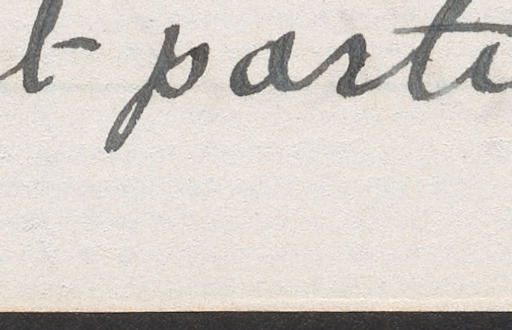 t parti